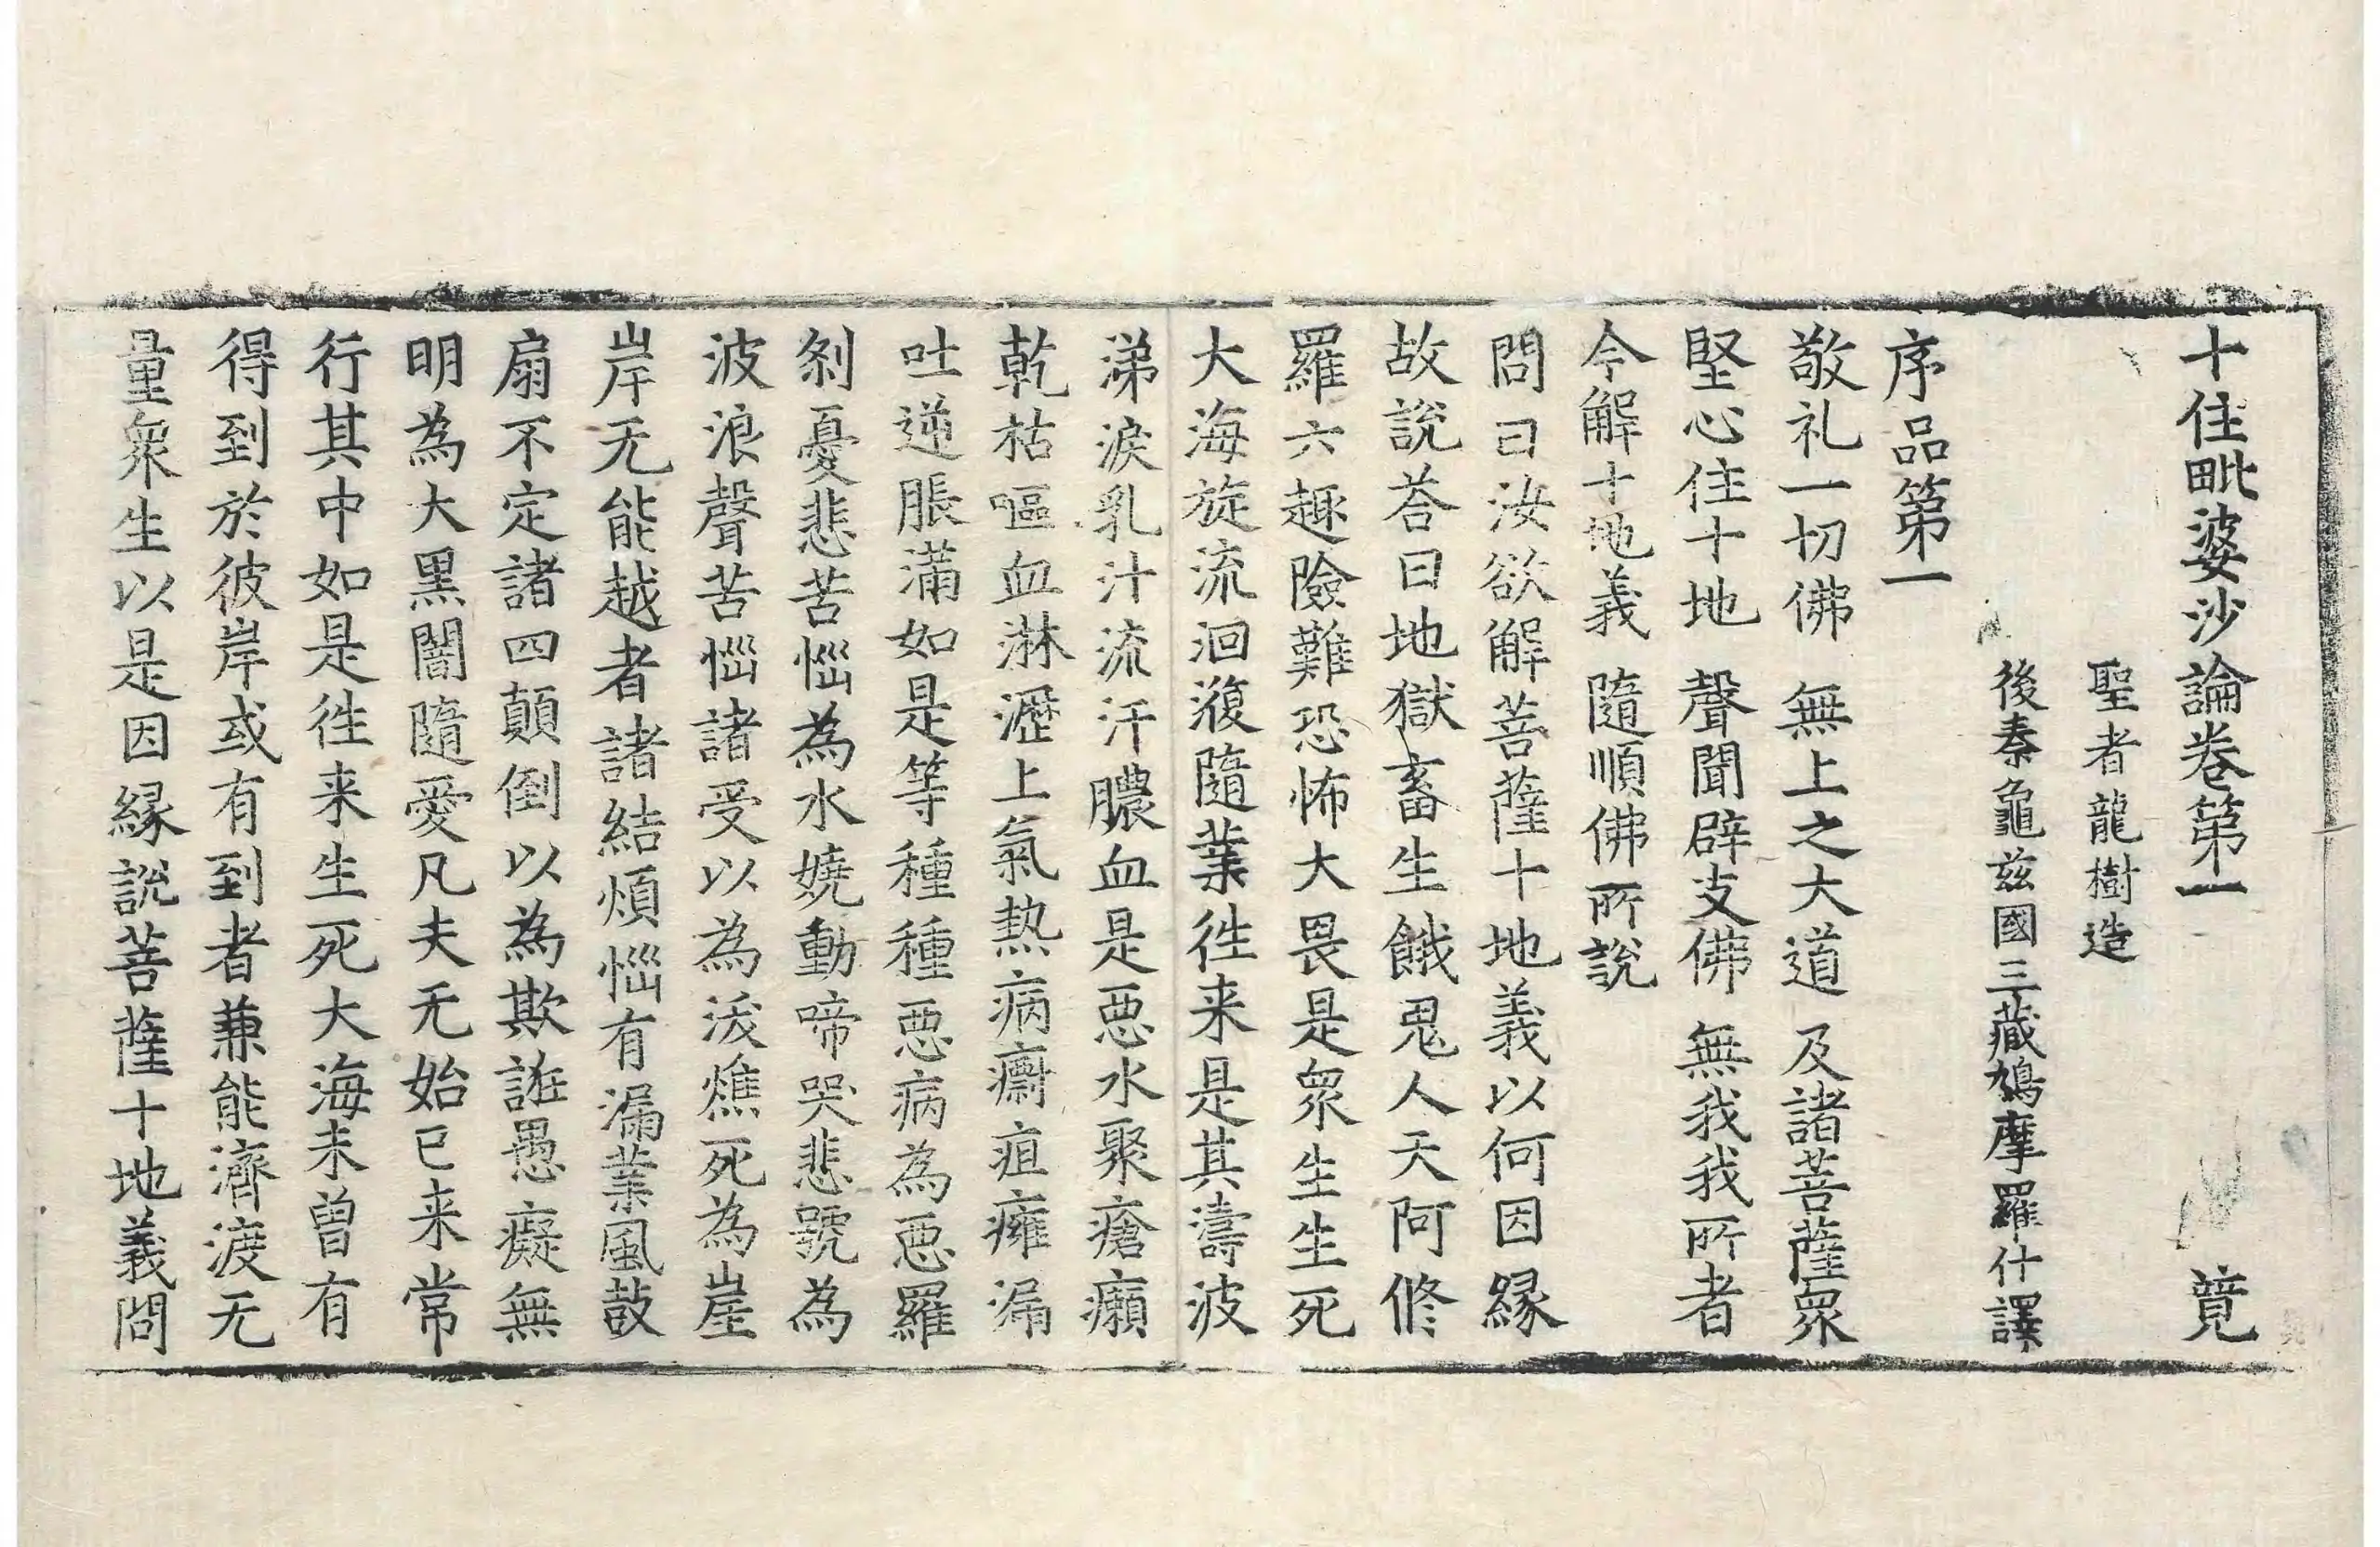 十住毗婆沙論卷第一 竟
聖者龍樹造
後秦龜茲國三藏鳩摩羅什譯
序品第一
敬礼一切佛 無上之大道 及諸菩薩衆
堅心住十地 聲聞辟支佛 無我我所者
今解十地義 隨順佛所說
問曰汝欲解菩薩十地義以何因縁
故說荅曰地獄畜生餓鬼人天阿脩
羅六趣險難恐怖大畏是衆生生死
大海旋流洄澓隨業徃来是其濤波
涕淚乳汁流汗膿血是惡水聚瘡癩
乾枯嘔血淋瀝上氣熱病瘭疽癰漏
吐逆脹滿如是等種種惡病為惡羅
刹憂悲苦惱為水嬈動啼哭悲號為
波浪聲苦惱諸受以為沃燋死為崖
岸无能越者諸結煩惱有漏業風鼓
扇不定諸四顛倒以為欺誑愚癡無
明為大黑闇隨愛凡夫无始已来常
行其中如是徃来生死大海未曾有
得到於彼岸或有到者兼能濟渡无
量衆生以是因縁說菩薩十地義問